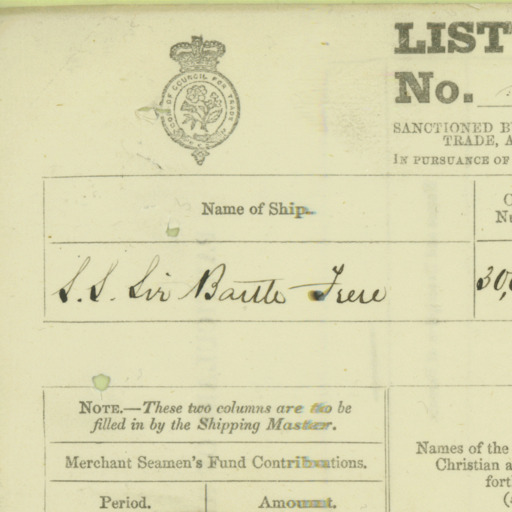 LIST
No.
SANCTIONED B
TRADE, A
IN PURSUANCE OF
Name of Ship.
S.S. Sir Bartle Frere
30,
NOTE.—These two columns are to be
filled in by the Shipping Master.
Merchant Seamen's Fund Contributions.
Period.
Amount.
Names of the
Christian a
fort